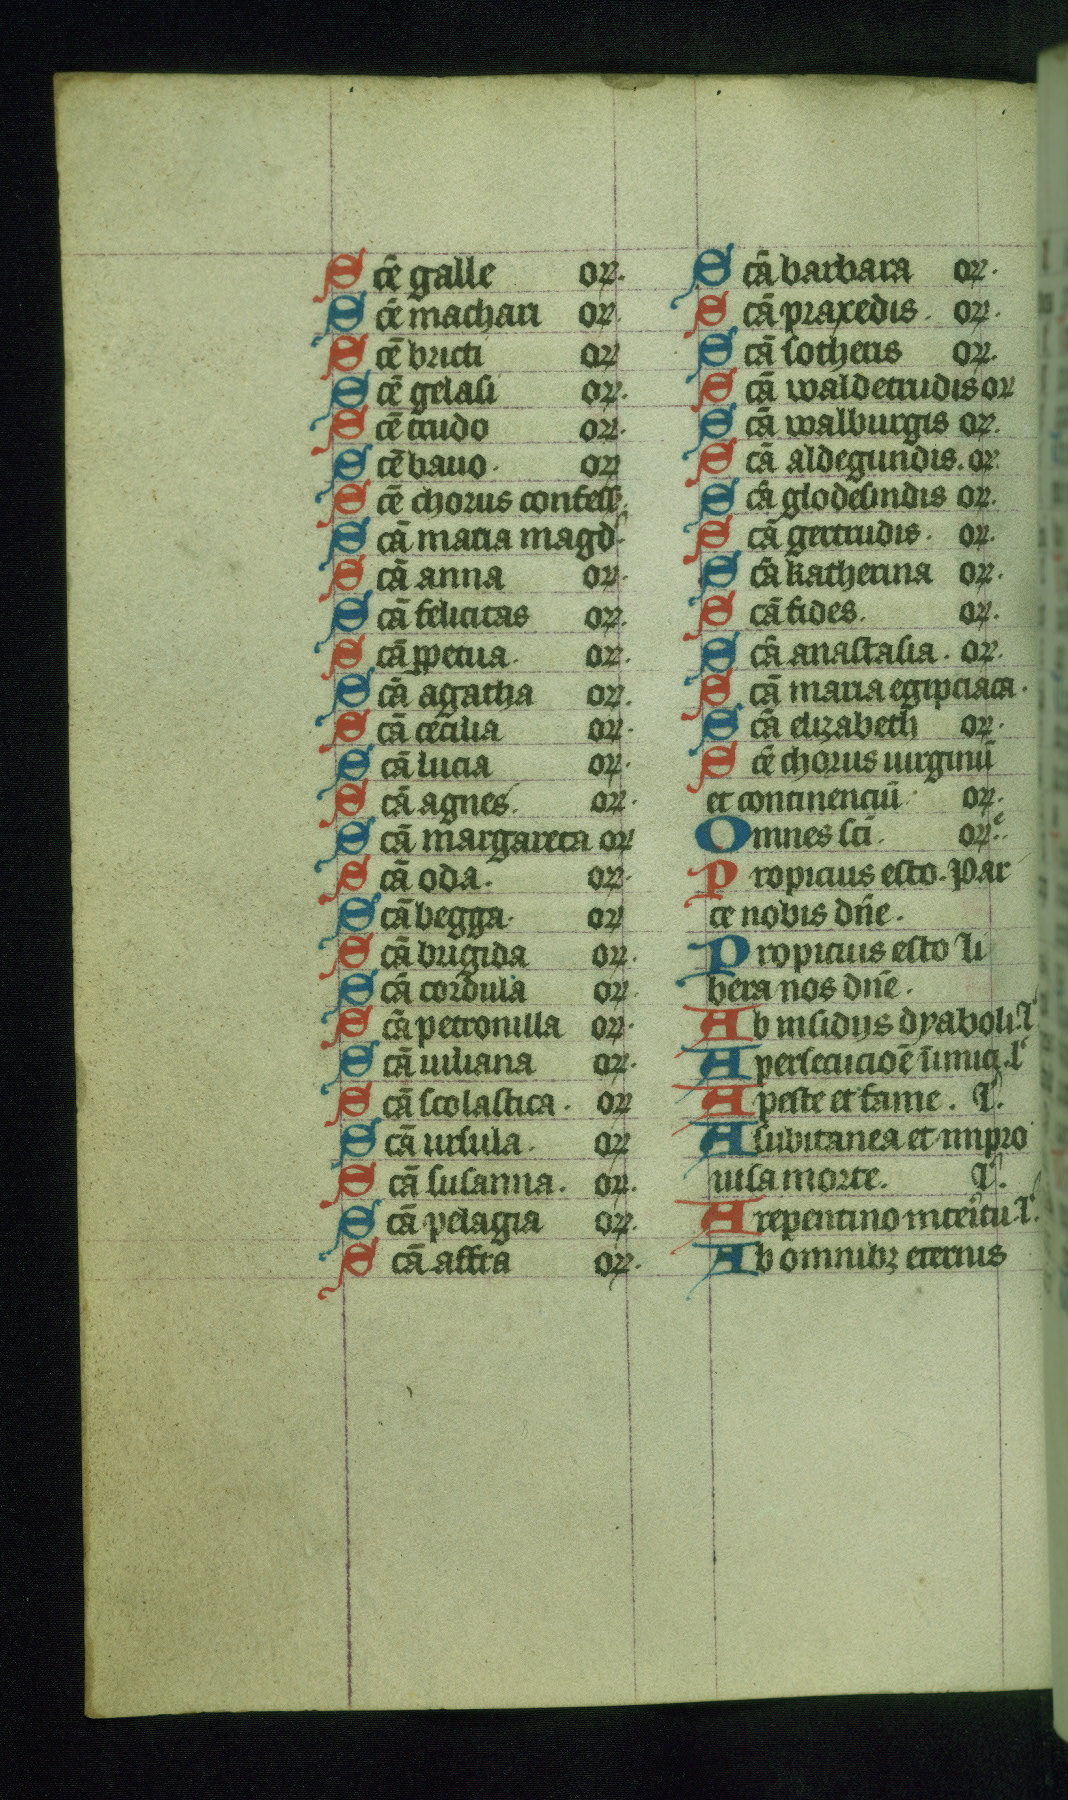 Scē galle or.
Scē machari or.
Scē bricti or
Scē gelasi or.
Scē trudo or.
Scē bauo. or
Scē chorus confess.
Scā maria magd.
Scā anna or.
Scā felicitas or.
Scā ꝑpetua. or.
Scā agatha or.
Scā cecilia or.
Scā lucia or.
Scā agnes. or.
Scā margareta or
Scā oda. or.
Scā begga. or
Scā brigida or.
Scā cordula or.
Scā petronilla or.
Scā iuliana or.
Scā scolastica. or
Scā ursula. or
Scā susanna. or.
Scā pelagia or.
Scā affra or.
Scā barbara or.
Scā praxedis. or.
Scā sotheris or.
Scā waldetrudis or
Scā walburgis or.
Scā aldegundis. or.
Scā glodesindis or.
Scā gertrudis. or.
Scā katherina or.
Scā fides. or.
Scā anastasia. or.
Scā maria egipciaca.
Scā elizabeth or.
Scē chorus uirginū
et continenciū. or.
Omnes sci. or.
Propicius esto. Par
ce nobis dn̄e.
Propicius esto li
bera nos dn̄e.
Ab insidijs dyaboli. l
A persecucioē inimici. l
A peste et fame. l.
A subitanea et impro
uisa morte. l.
A repentino interitu. l.
Ab omnibꝫ eternis